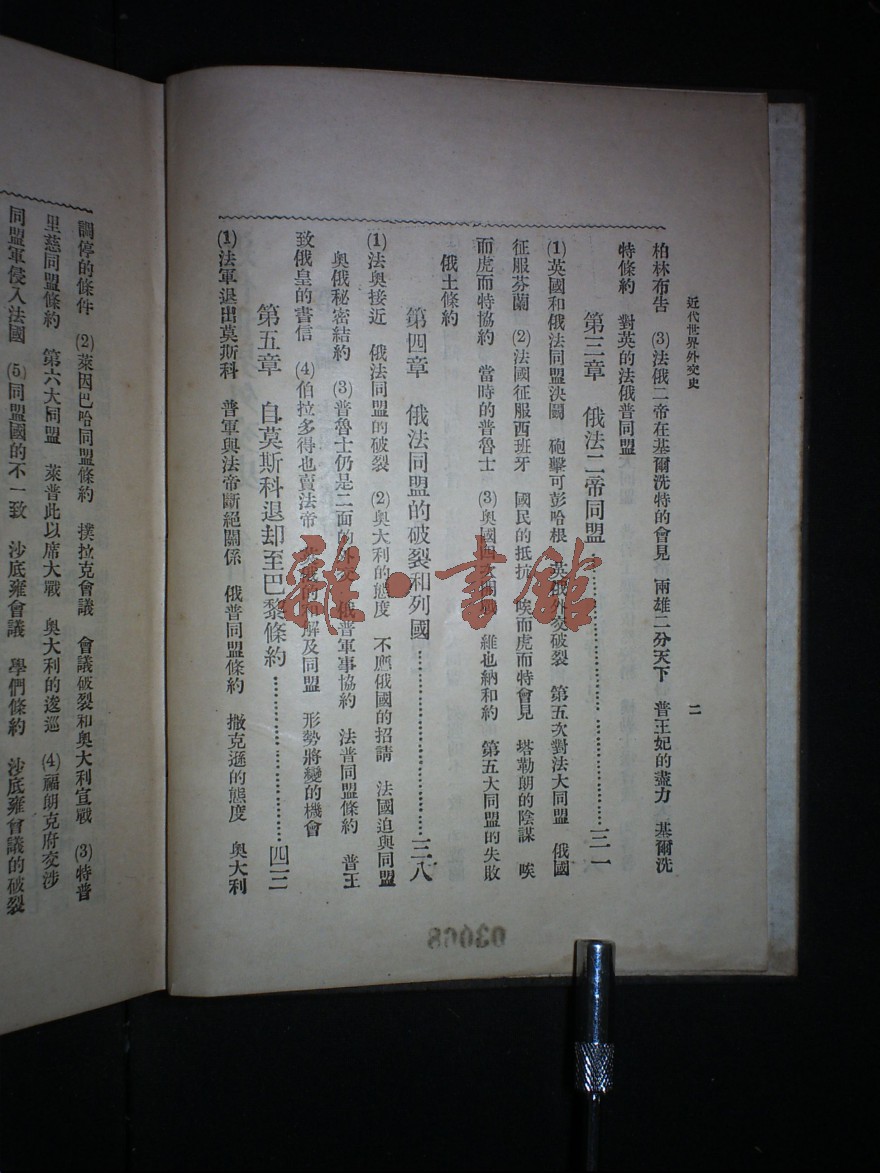 近代世界外交史
二
柏林布告　(3)法俄二帝在基爾洗特的會見　兩雄二分天下　普王妃的盡力　基爾洗
特條約　對英的法俄普同盟
第三章　俄法二帝同盟……三一
(1)英國和俄法同盟決鬪　砲擊可彭哈根　英俄外交破裂　第五次對法大同盟　俄國
征服芬蘭　(2)法國征服西班牙　國民的抵抗　唉而虎而特會見　塔勒朗的陰謀　唉
而虎而特協約　當時的普魯士　(3)奧國　維也納和約　第五大同盟的失敗
俄土條約
第四章　俄法同盟的破裂和列國……三八
(1)法奧接近　俄法同盟的破裂　(2)奧大利的態度　不應俄國的招請　法國迫與同盟
奧俄秘密結約　(3)普魯士仍是二面的外交　俄普軍事協約　法普同盟條約　普王
致俄皇的書信　(4)伯拉多得也賣法帝　和解及同盟　形勢將變的機會
第五章　自莫斯科退却至巴黎條約……四三
(1)法軍退出莫斯科　普軍與法帝斷絕關係　俄普同盟條約　撒克遜的態度　奧大利
調停的條件　(2)萊因巴哈同盟條約　撲拉克會議　會議破裂和奧大利宣戰　(3)特普
里慈同盟條約　第六大同盟　萊普此以席大戰　奧大利的逡巡　(4)福朗克府交涉
同盟軍侵入法國　(5)同盟國的不一致　沙底雍會議　學們條約　沙底雍會議的破裂
雅·書館
03068